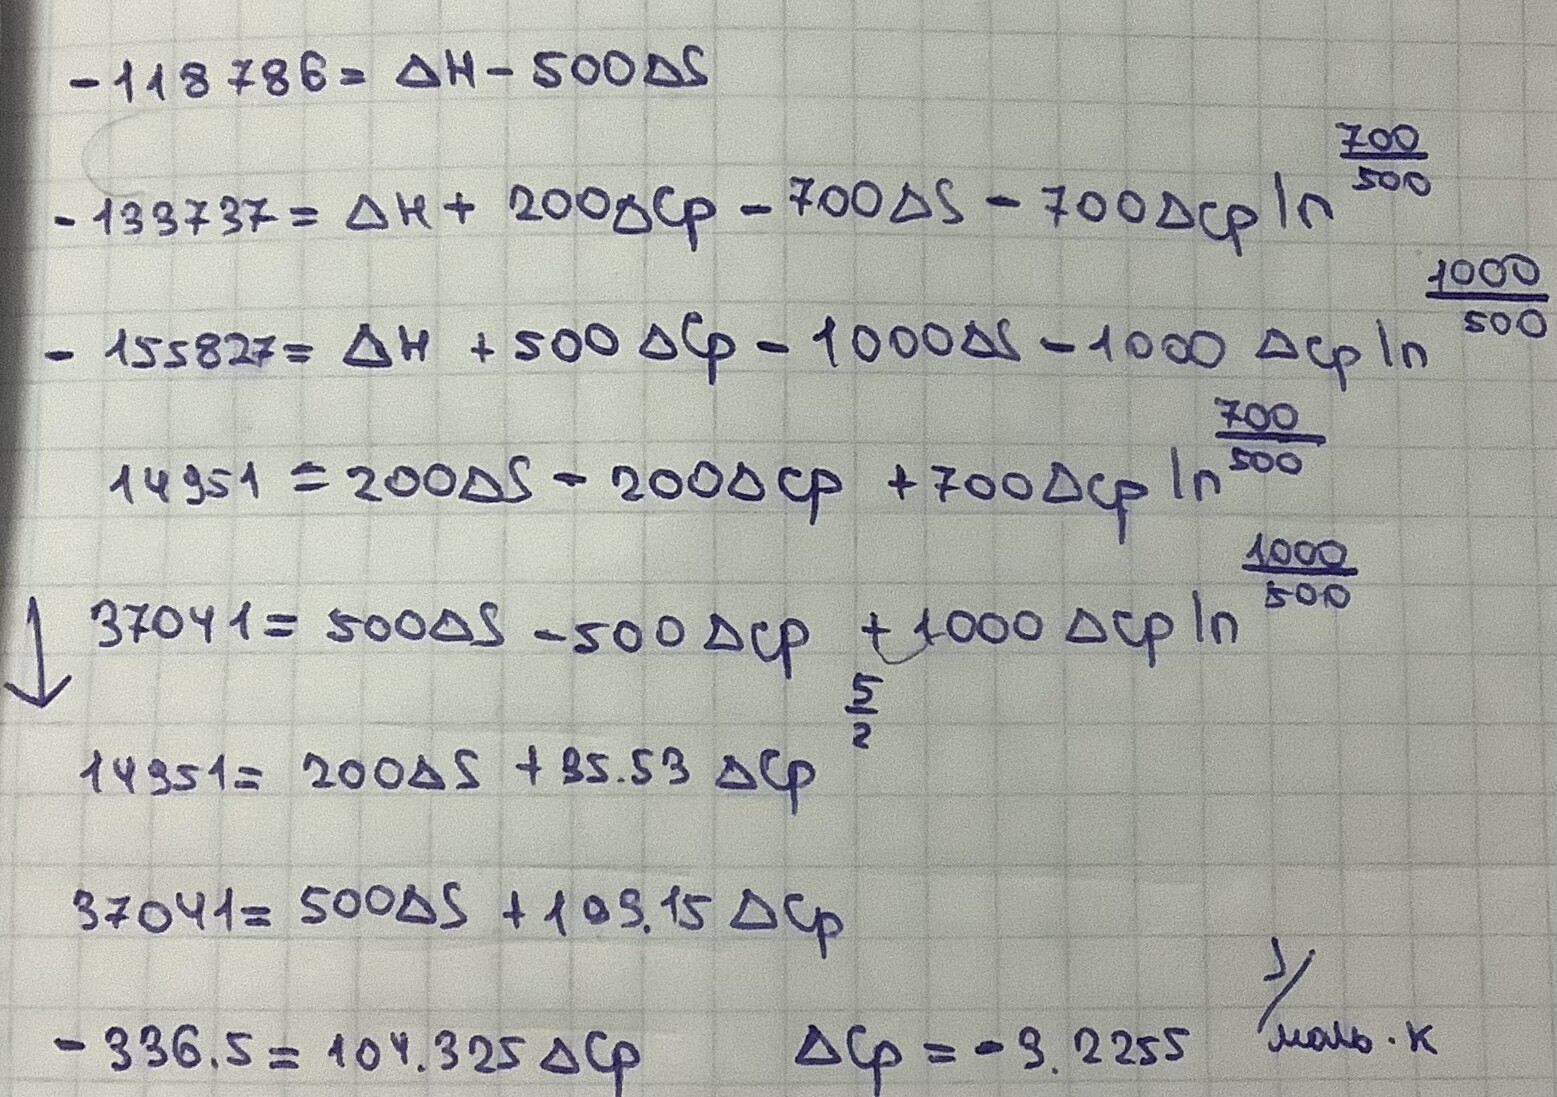 -118786 = ΔH - 500ΔS
-133737 = ΔH + 200ΔCp - 700ΔS - 700ΔCp ln 700/500
- 155827 = ΔH + 500 ΔCp - 1000ΔS - 1000 ΔCp ln 1000/500
14951 = 200ΔS - 200ΔCp + 700ΔCp ln 700/500
37041 = 500ΔS - 500 ΔCp + 1000 ΔCp ln 1000/500
5/2
14951 = 200ΔS + 35.53 ΔCp
37041 = 500ΔS + 193.15 ΔCp
-336.5 = 104.325 ΔCp ΔCp = -3.2255 J/моль·К